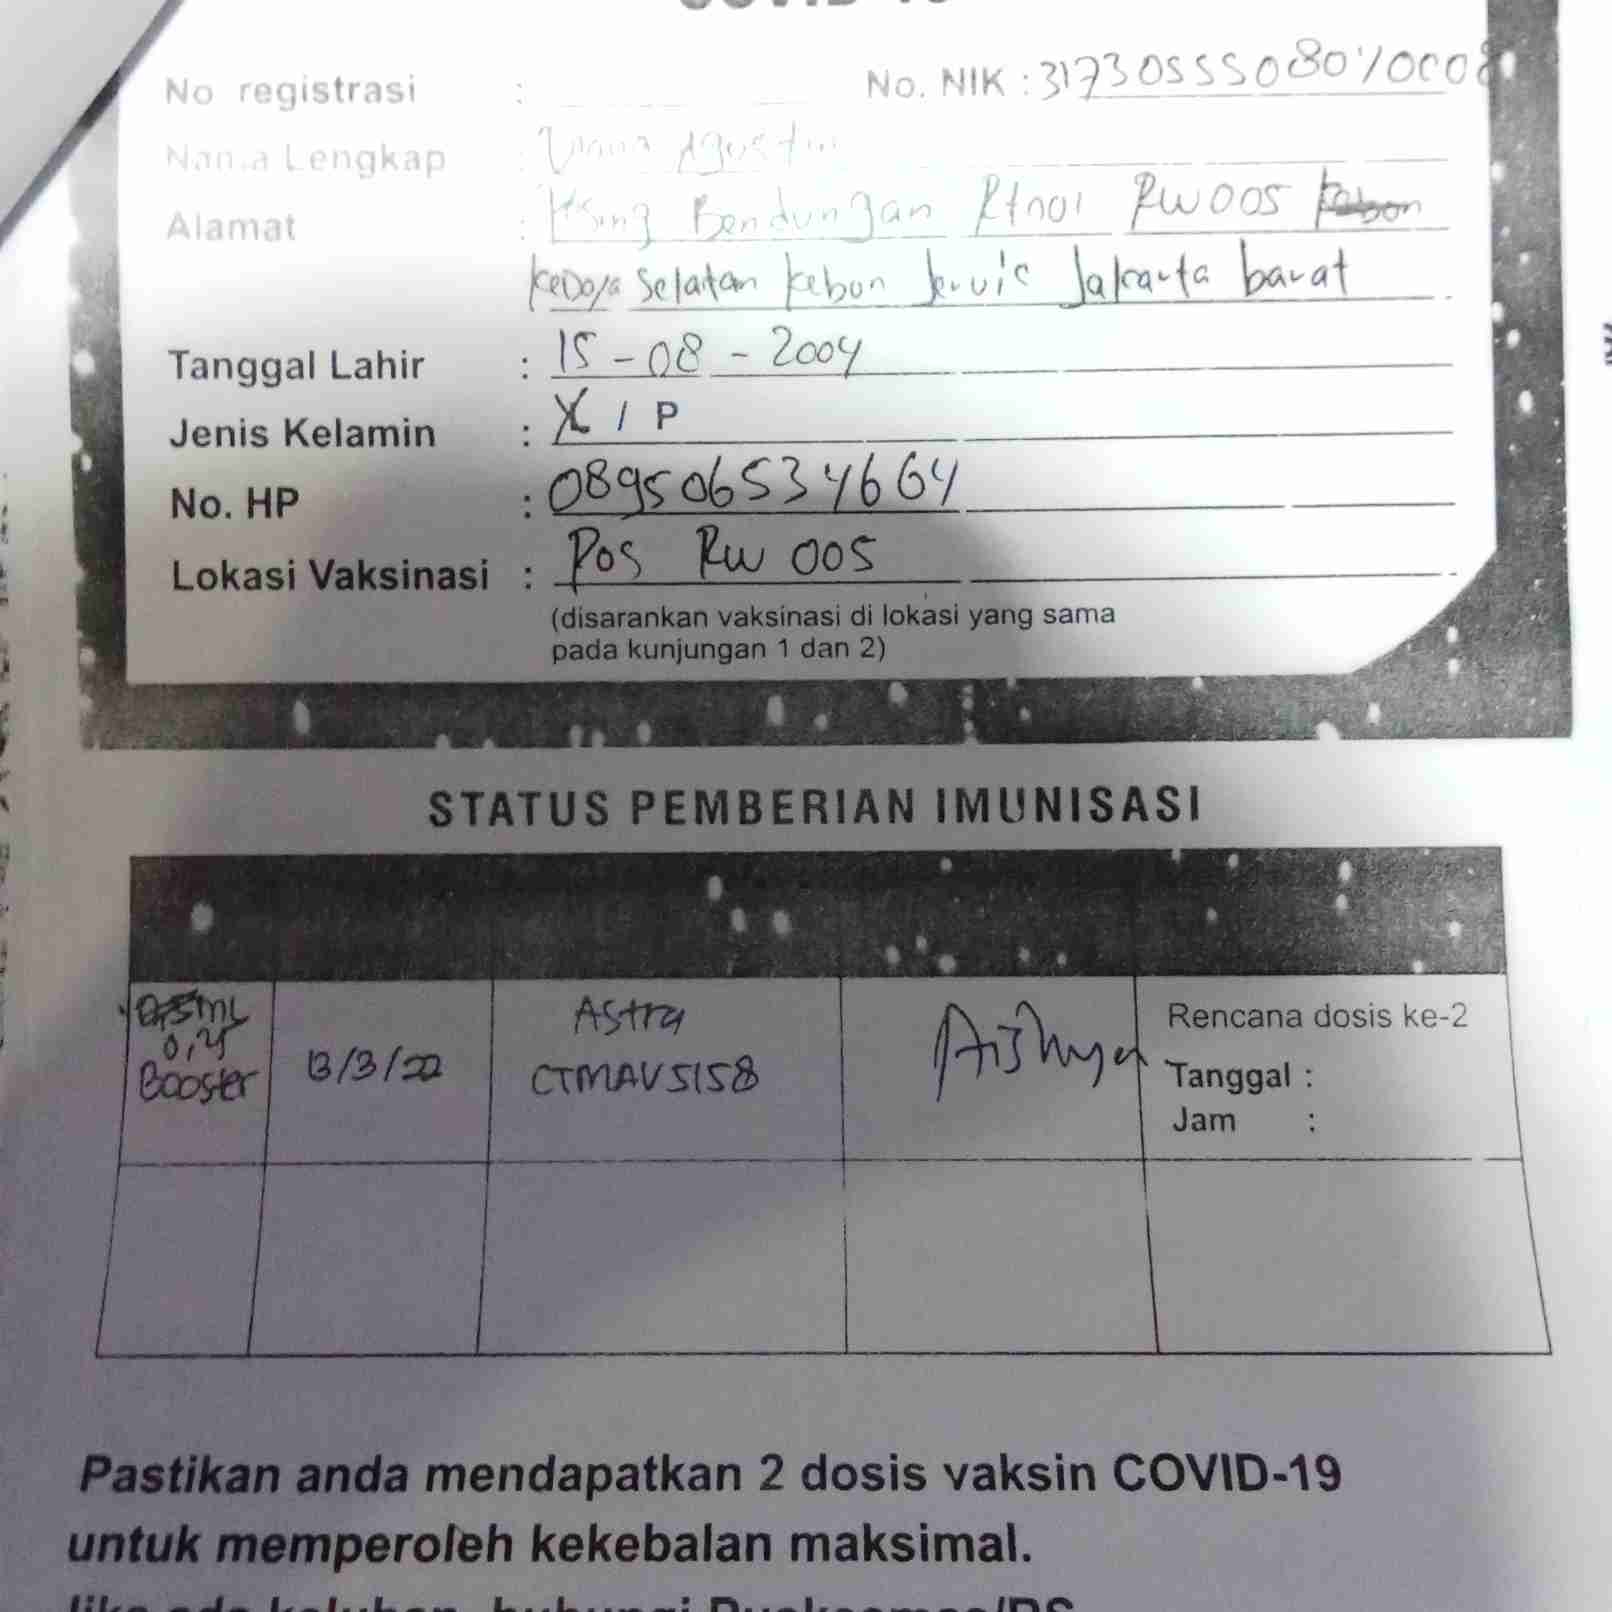 COVID-19
No registrasi : No. NIK : 3173055508040008
Nama Lengkap : Agustin
Alamat : Bendungan Rt 001 RW 005
Kedoya Selatan kebon Jeruk Jakarta barat
Tanggal Lahir : 15-08-2004
Jenis Kelamin : L / P
No. HP : 0895065334664
Lokasi Vaksinasi : Pos RW 005
(disarankan vaksinasi di lokasi yang sama
pada kunjungan 1 dan 2)
STATUS PEMBERIAN IMUNISASI
0,5 ML
0,25
Booster
13/3/22
Astra
CTMAV5158
Rencana dosis ke-2
Tanggal :
Jam :
Pastikan anda mendapatkan 2 dosis vaksin COVID-19
untuk memperoleh kekebalan maksimal.
Jika ada keluhan, hubungi Puskesmas/RS